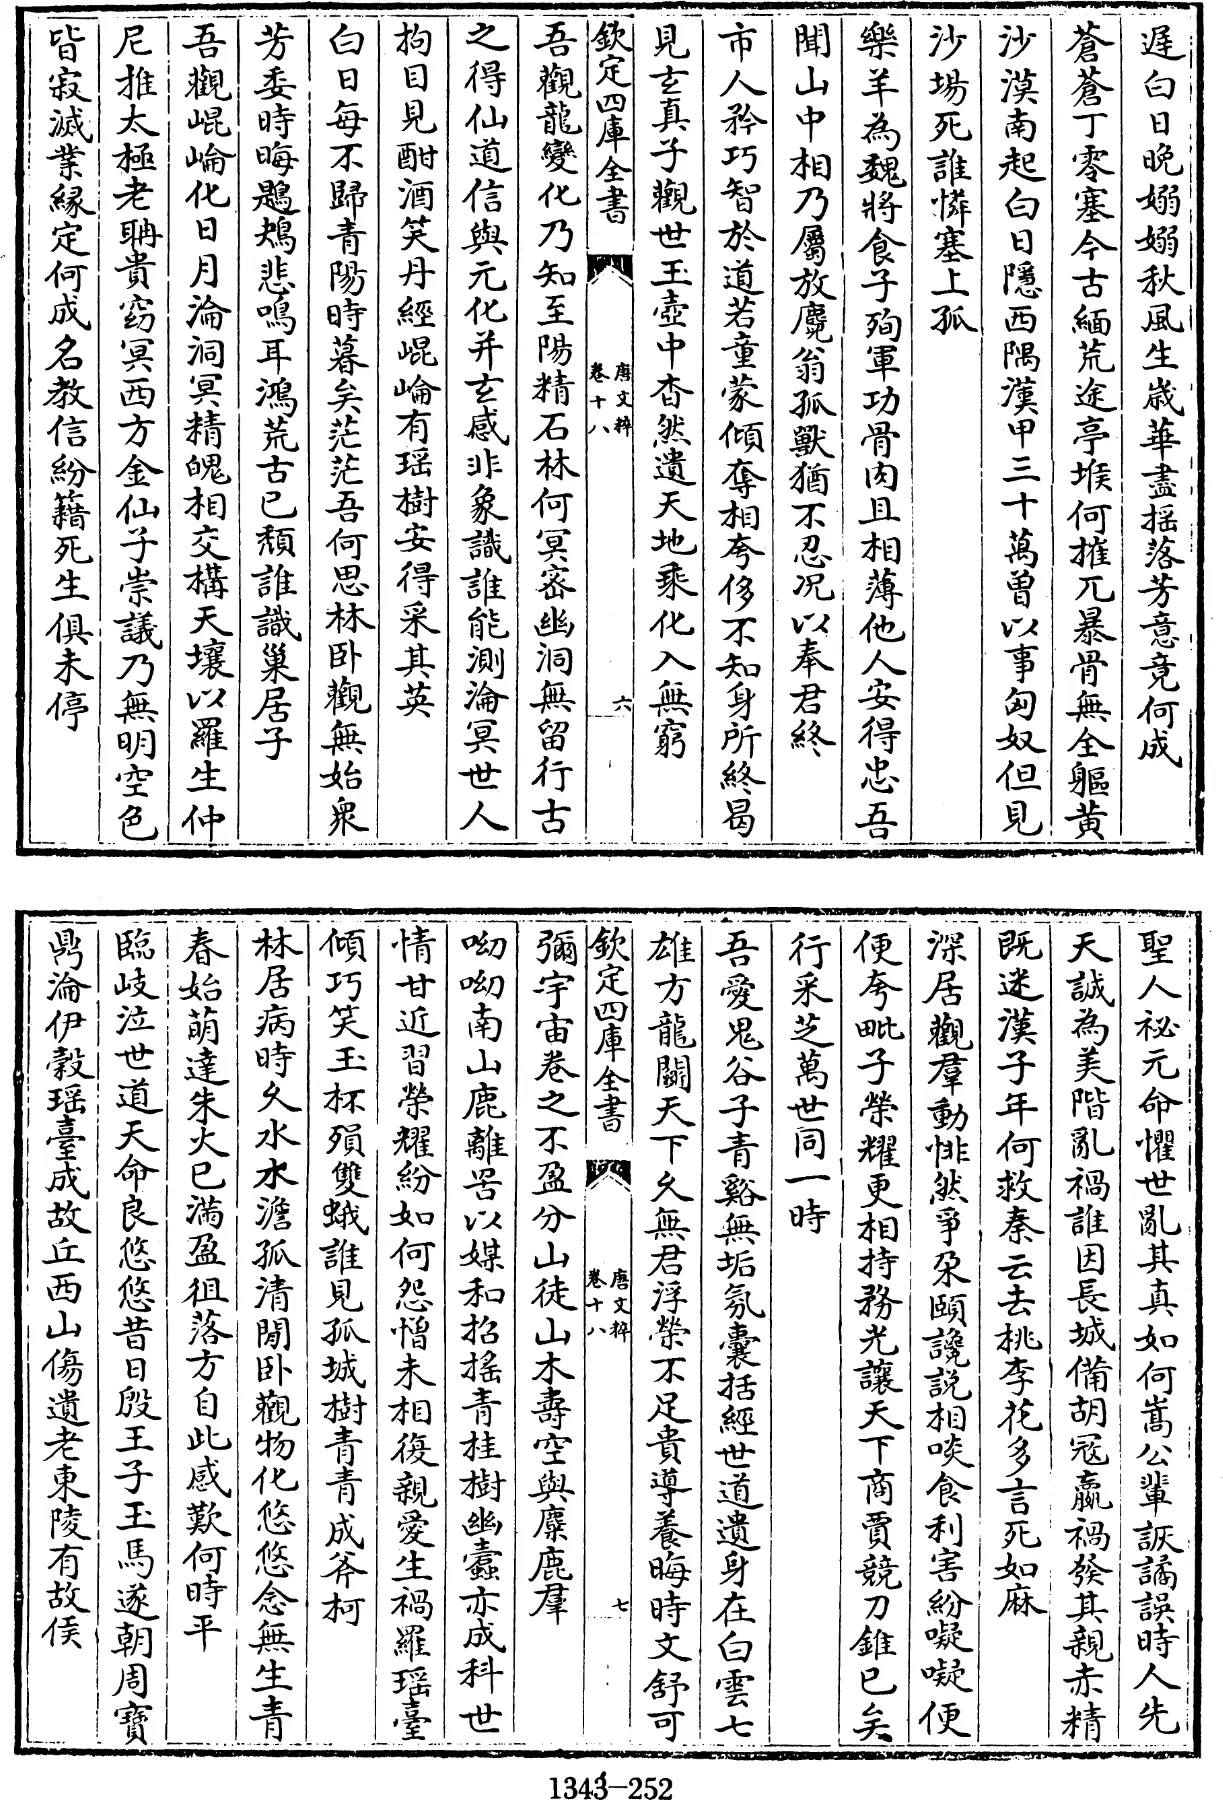 遅白日晚嫋嫋秋風生歳華盡揺落芳意竟何成
蒼蒼丁零塞今古緬荒途亭堠何摧兀暴骨無全軀黄
沙漠南起白日隱西隅漢甲三十萬曽以事匈奴但見
沙場死誰憐塞上孤
樂羊為魏將食子殉軍功骨肉且相薄他人安得忠吾
聞山中相乃屬放麑翁孤獸猶不忍况以奉君終
市人矜巧智於道若童蒙傾奪相夸侈不知身所終曷
見𤣥真子觀世玉壺中杳然遺天地乘化入無窮
欽定四庫全書
唐文粹
卷十八
六
吾觀龍變化乃知至陽精石林何冥宻幽洞無留行古
之得仙道信與元化并𤣥感非象識誰能測淪冥世人
拘目見酣酒笑丹經崐崘有瑶樹安得采其英
白日每不歸青陽時暮矣茫茫吾何思林卧觀無始衆
芳委時晦鶗鴂悲鳴耳鴻荒古已頽誰識巢居子
吾觀崐崘化日月淪洞冥精魄相交構天壤以羅生仲
尼推太極老聃貴窈冥西方金仙子崇議乃無明空色
皆寂滅業縁定何成名教信紛籍死生俱未停
聖人祕元命懼世亂其真如何嵩公輩詼譎誤時人先
天誠為美階亂禍誰因長城備胡冦嬴禍發其親赤精
既迷漢子年何救秦云去桃李花多言死如麻
深居觀羣動悱然爭朶頤讒説相啖食利害紛㘈㘈便
便夸毗子榮耀更相持務光讓天下商賈競刀錐已矣
行采芝萬世同一時
吾愛鬼谷子青谿無垢氛囊括經世道遺身在白雲七
雄方龍鬬天下乆無君浮榮不足貴導養晦時文舒可
欽定四庫全書
唐文粹
卷十八
七
彌宇宙卷之不盈分山徒山木壽空與麋鹿羣
呦呦南山鹿離罟以媒和招揺青桂樹幽蠹亦成科世
情甘近習榮耀紛如何怨憎未相復親愛生禍羅瑶臺
傾巧笑玉杯殞雙蛾誰見孤城樹青青成斧柯
林居病時乆水水澹孤清閒卧觀物化悠悠念無生青
春始萌達朱火已滿盈徂落方自此感歎何時平
臨岐泣世道天命良悠悠昔日殷王子玉馬遂朝周寳
鼎淪伊穀瑶臺成故丘西山傷遺老東陵有故侯
1343-252